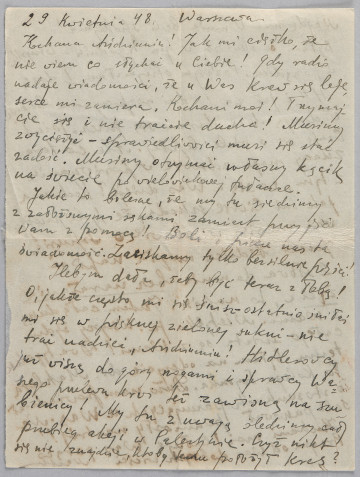 29 Kwietnia 48. Warszawa.
Kochana Aridiunniu! Jak mi ciężko, że
nie wiem co słychać u Ciebie! Gdy radio
nadaje wiadomości, że u Was krew się leje,
serce mi zamiera. Kochani moi! Trzymaj
cie się i nie traćcie ducha! Musimy
zwyciężyć - sprawiedliwości musi się stać
zadość. Musimy otrzymać własny kącik
na świecie po wielowiekowej tułaczce.
Jakie to bolesne, że my tu siedzimy
z założonymi rękami zamiast przyjść
Wam z pomocą! Boli nas ta
świadomość. Zaciskamy tylko bezsilnie pięści!
Ileż bym dała, żeby być teraz z Tobą!
Oj jakże często mi się śnisz - ostatnio śniłaś
mi się w pięknej zielonej sukni - nie
trać nadziei, ! Hitlerowcy
już wiszą do góry nogami i sprawcy Wa-
szego przelewu krwi też zawisną na szu-
bienicy! My tu z uwagą śledzimy cały
przebieg akcji w Palestynie. Czyż nikt
się nie znajdzie, ktoby temu położył kres?